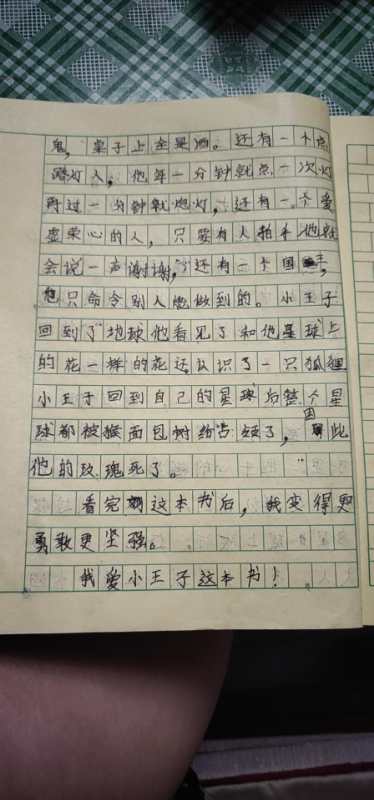 鬼，桌子上全是酒。还有一个点
灯人，他每一分钟就点一次灯
再过一分钟就熄灯，还有一个爱
虚荣心的人，只要有人拍手他就
会说一声谢谢，还有一个国王，
他只命令别人能做到的。小王子
回到了地球他看见了和他星球上
的花一样的花还认识了一只狐狸
小王子回到自己的星球后整个星
球都被猴面包树给占领了，因此
他的玫瑰死了。
看完这本书后，我变得更
勇敢更坚强。
我爱小王子这本书！